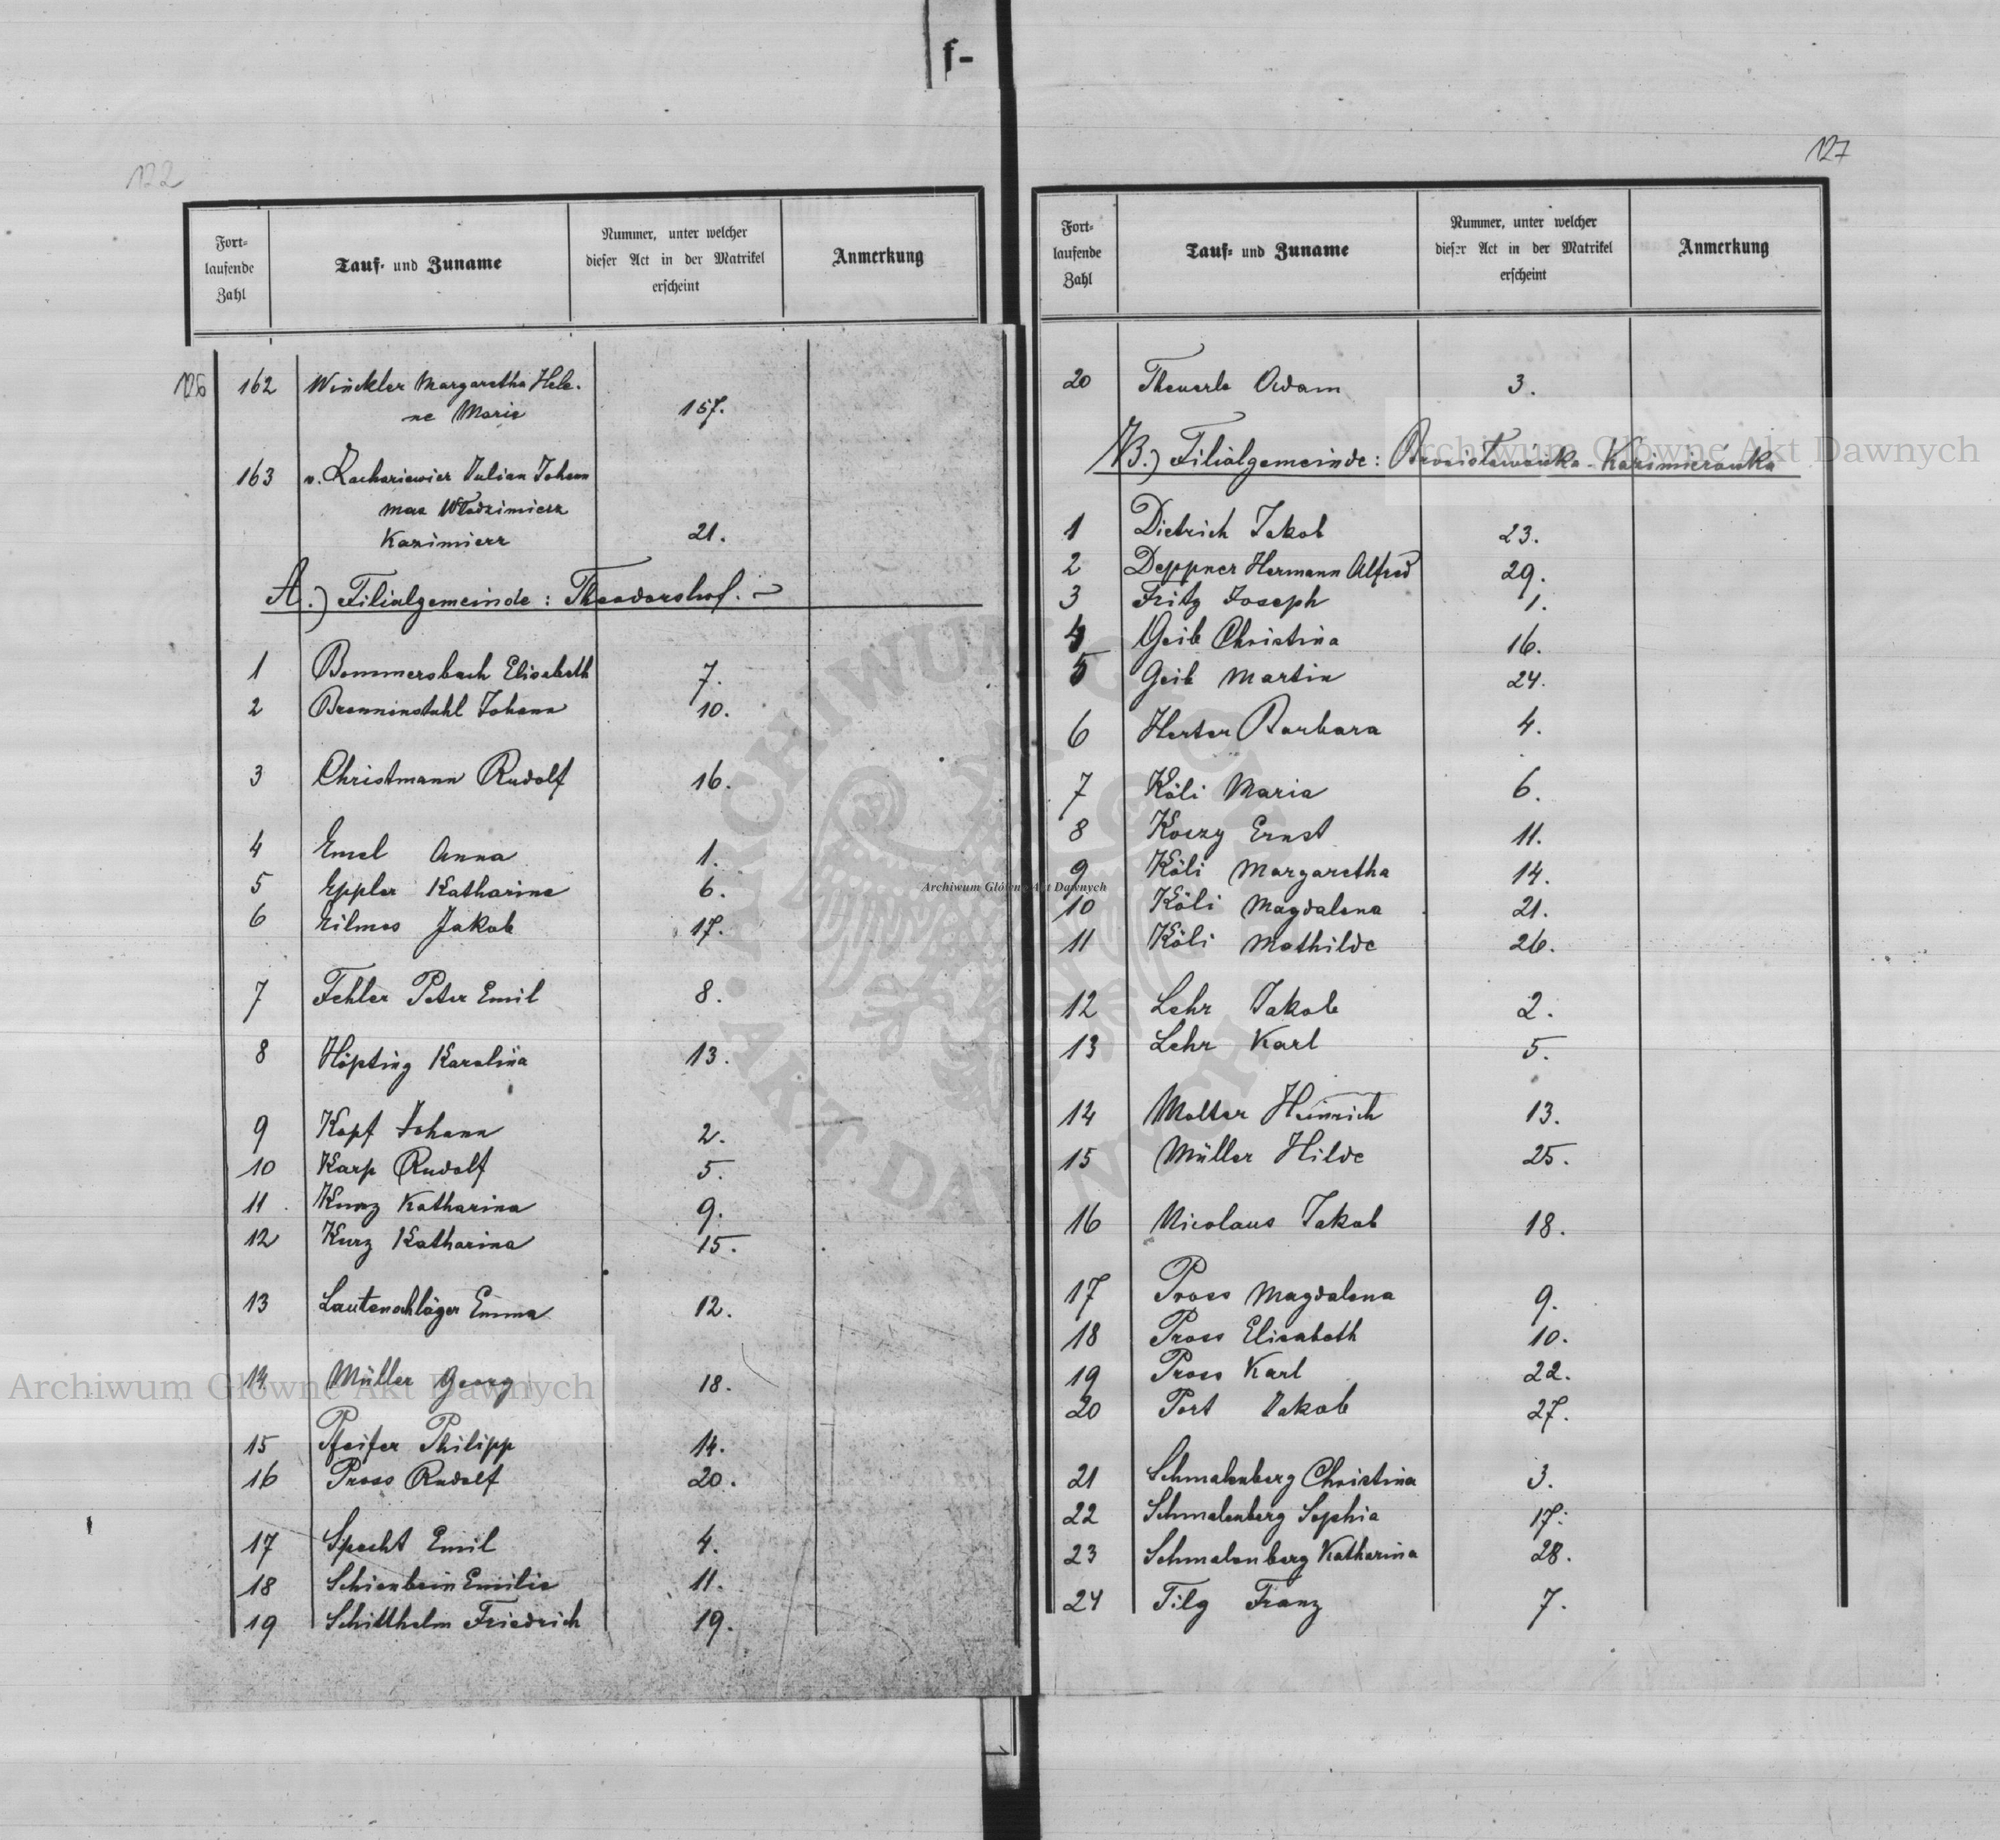 f-
122
Fort-
laufende
Zahl
Tauf- und Zuname
Nummer, unter welcher
dieser Act in der Matrikel
erscheint
Anmerkung
126 162 Winckler Margaretha Hele-
ne Marie 157.
163 v. Zachariewicz Julian Johann
Max Włodzimierz
Kazimierz 21.
A.) Filialgemeinde: Theodorshof.
1 Bommersbach Elisabeth 7.
2 Brenninstuhl Johann 10.
3 Christmann Rudolf 16.
4 Emel Anna 1.
5 Eppler Katharina 6.
6 Eilmes Jakob 17.
7 Fehler Peter Emil 8.
8 Höpting Karolina 13.
9 Kopf Johann 2.
10 Karp Rudolf 5.
11 Kurz Katharina 9.
12 Kurz Katharina 15.
13 Lautenschläger Emma 12.
14 Müller Georg 18.
15 Pfeifer Philipp 14.
16 Pross Rudolf 20.
17 Specht Emil 4.
18 Schienbein Emilie 11.
19 Schitthelm Friedrich 19.
127
Fort-
laufende
Zahl
Tauf- und Zuname
Nummer, unter welcher
dieser Act in der Matrikel
erscheint
Anmerkung
20 Theuerle Adam 3.
B.) Filialgemeinde: Bronisławówka-Kazimierówka
1 Dietrich Jakob 23.
2 Deppner Hermann Alfred 29.
3 Fritz Joseph 1.
4 Geib Christina 16.
5 Geib Martin 24.
6 Herter Barbara 4.
7 Köli Maria 6.
8 Koczy Ernst 11.
9 Köli Margaretha 14.
10 Köli Magdalena 21.
11 Köli Mathilde 26.
12 Lehr Jakob 2.
13 Lehr Karl 5.
14 Molter Heinrich 13.
15 Müller Hilde 25.
16 Nicolaus Jakob 18.
17 Pross Magdalena 9.
18 Pross Elisabeth 10.
19 Pross Karl 22.
20 Port Jakob 27.
21 Schmalenberg Christina 3.
22 Schmalenberg Sophia 17.
23 Schmalenberg Katharina 28.
24 Tilg Franz 7.
Archiwum Główne Akt Dawnych
Archiwum Główne Akt Dawnych
Archiwum Główne Akt Dawnych
ARCHIWUM GŁÓWNE
AKT DAWNYCH